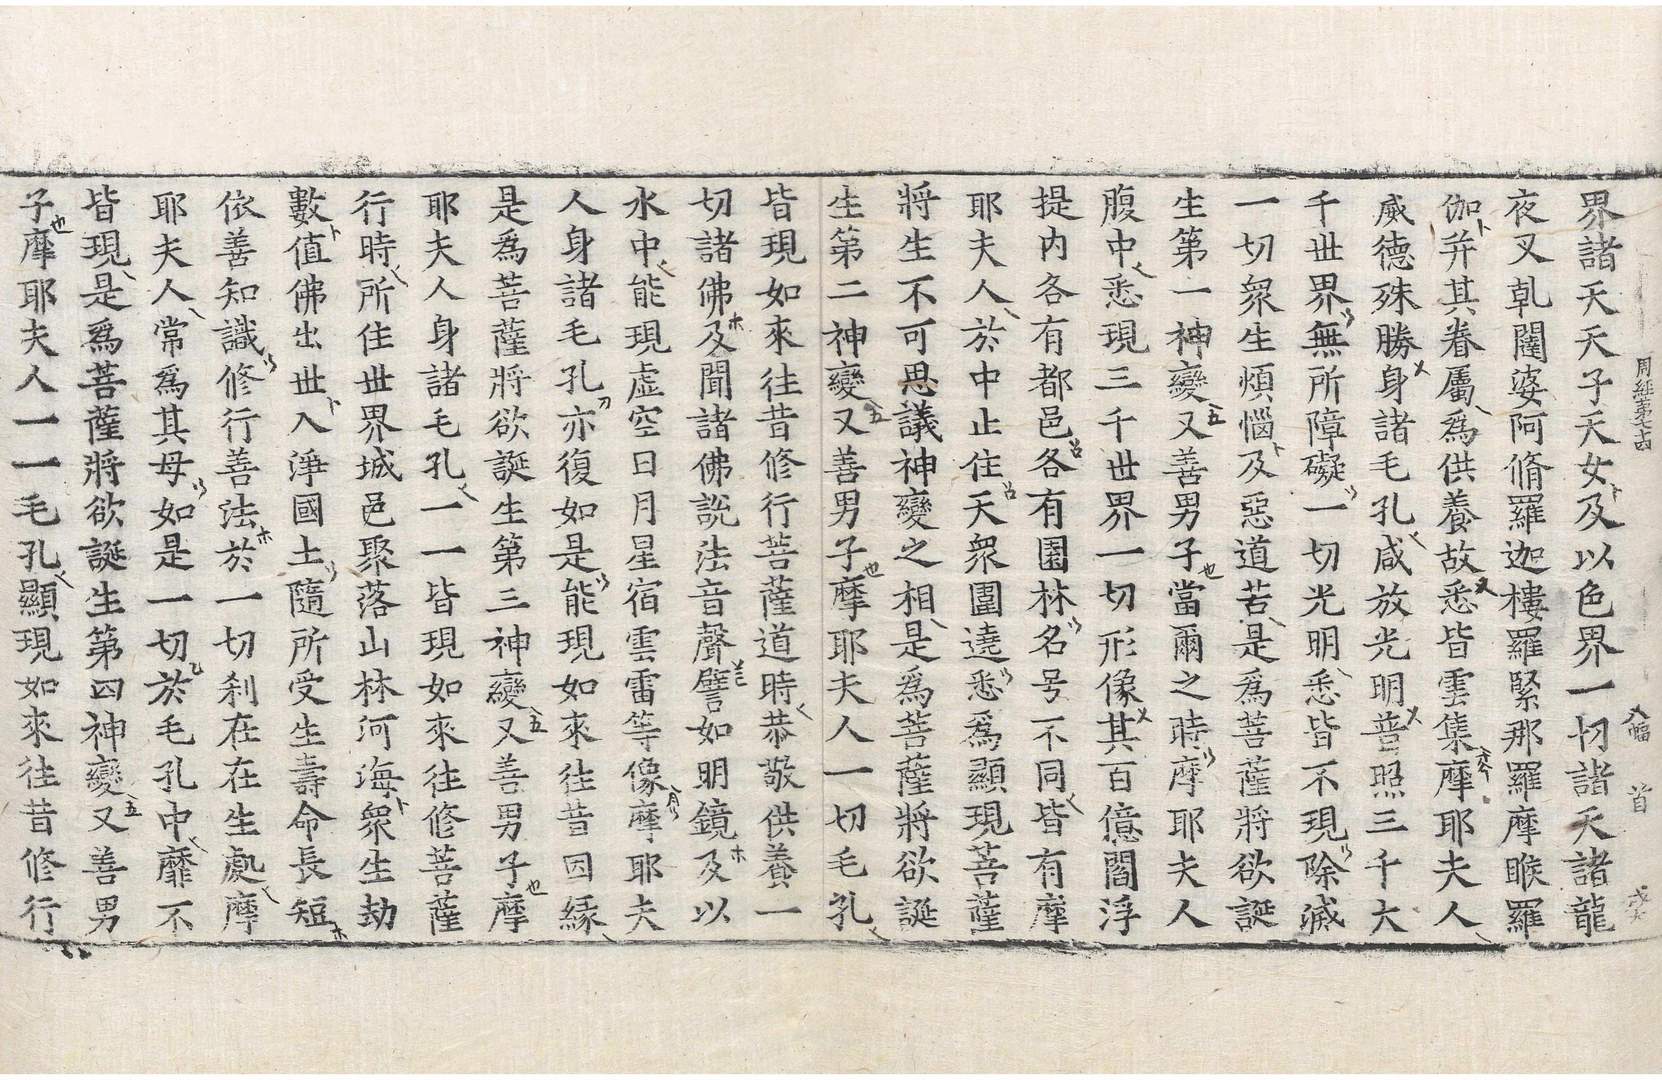 界諸天天子天女及以色界一切諸天諸龍
夜叉乹闥婆阿脩羅迦樓羅緊那羅摩睺羅
伽并其眷屬爲供養故悉皆雲集摩耶夫人
威德殊勝身諸毛孔咸放光明普照三千大
千世界無所障礙一切光明悉皆不現除滅
一切衆生煩惱及惡道苦是爲菩薩將欲誕
生第一神變又善男子當爾之時摩耶夫人
腹中悉現三千世界一切形像其百億閻浮
提内各有都邑各有園林名号不同皆有摩
耶夫人於中止住天衆圍遶悉爲顯現菩薩
將生不可思議神變之相是爲菩薩將欲誕
生第二神變又善男子摩耶夫人一切毛孔
皆現如來往昔修行菩薩道時恭敬供養一
切諸佛及聞諸佛說法音聲譬如明鏡及以
水中能現虛空日月星宿雲雷等像摩耶夫
人身諸毛孔亦復如是能現如來往昔因緣
是爲菩薩將欲誕生第三神變又善男子摩
耶夫人身諸毛孔一一皆現如來往修菩薩
行時所住世界城邑聚落山林河海衆生劫
數值佛出世入淨國土隨所受生壽命長短
依善知識修行善法於一切刹在在生處摩
耶夫人常爲其母如是一切於毛孔中靡不
皆現是爲菩薩將欲誕生第四神變又善男
子摩耶夫人一一毛孔顯現如來往昔修行